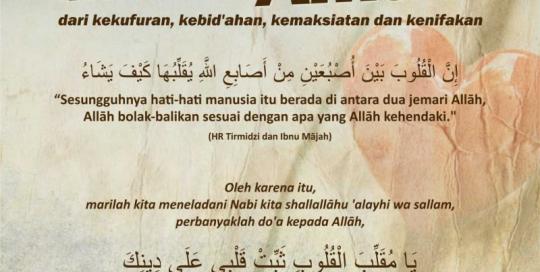 dari kekufuran, kebid'ahan, kemaksiatan dan kenifakan
إِنَّ الْقُلُوبَ بَيْنَ أُصْبُعَيْنِ مِنْ أَصَابِعِ اللَّهِ يُقَلِّبُهَا كَيْفَ يَشَاءُ
“Sesungguhnya hati-hati manusia itu berada di antara dua jemari Allāh,
Allāh bolak-balikan sesuai dengan apa yang Allāh kehendaki."
(HR Tirmidzi dan Ibnu Mājah)
Oleh karena itu,
marilah kita meneladani Nabi kita shallallāhu 'alayhi wa sallam,
perbanyaklah do'a kepada Allāh,
يَا مُقَلِّبَ الْقُلُوبِ ثَبِّتْ قَلْبِي عَلَى دِينِكَ